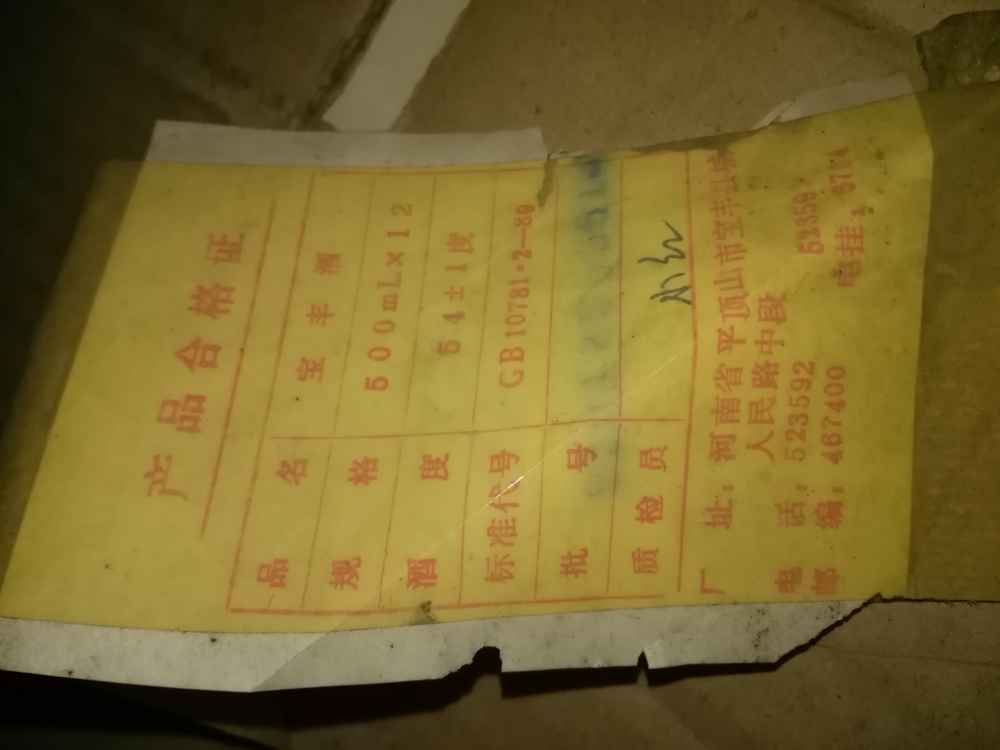 产品合格证
品名 宝丰酒
规格 500mL×12
酒度 54±1度
标准代号 GB10781·2—89
批号
质检员
厂址：河南省平顶山市宝丰
人民路中段
电话：523592
邮编：467400 电挂：